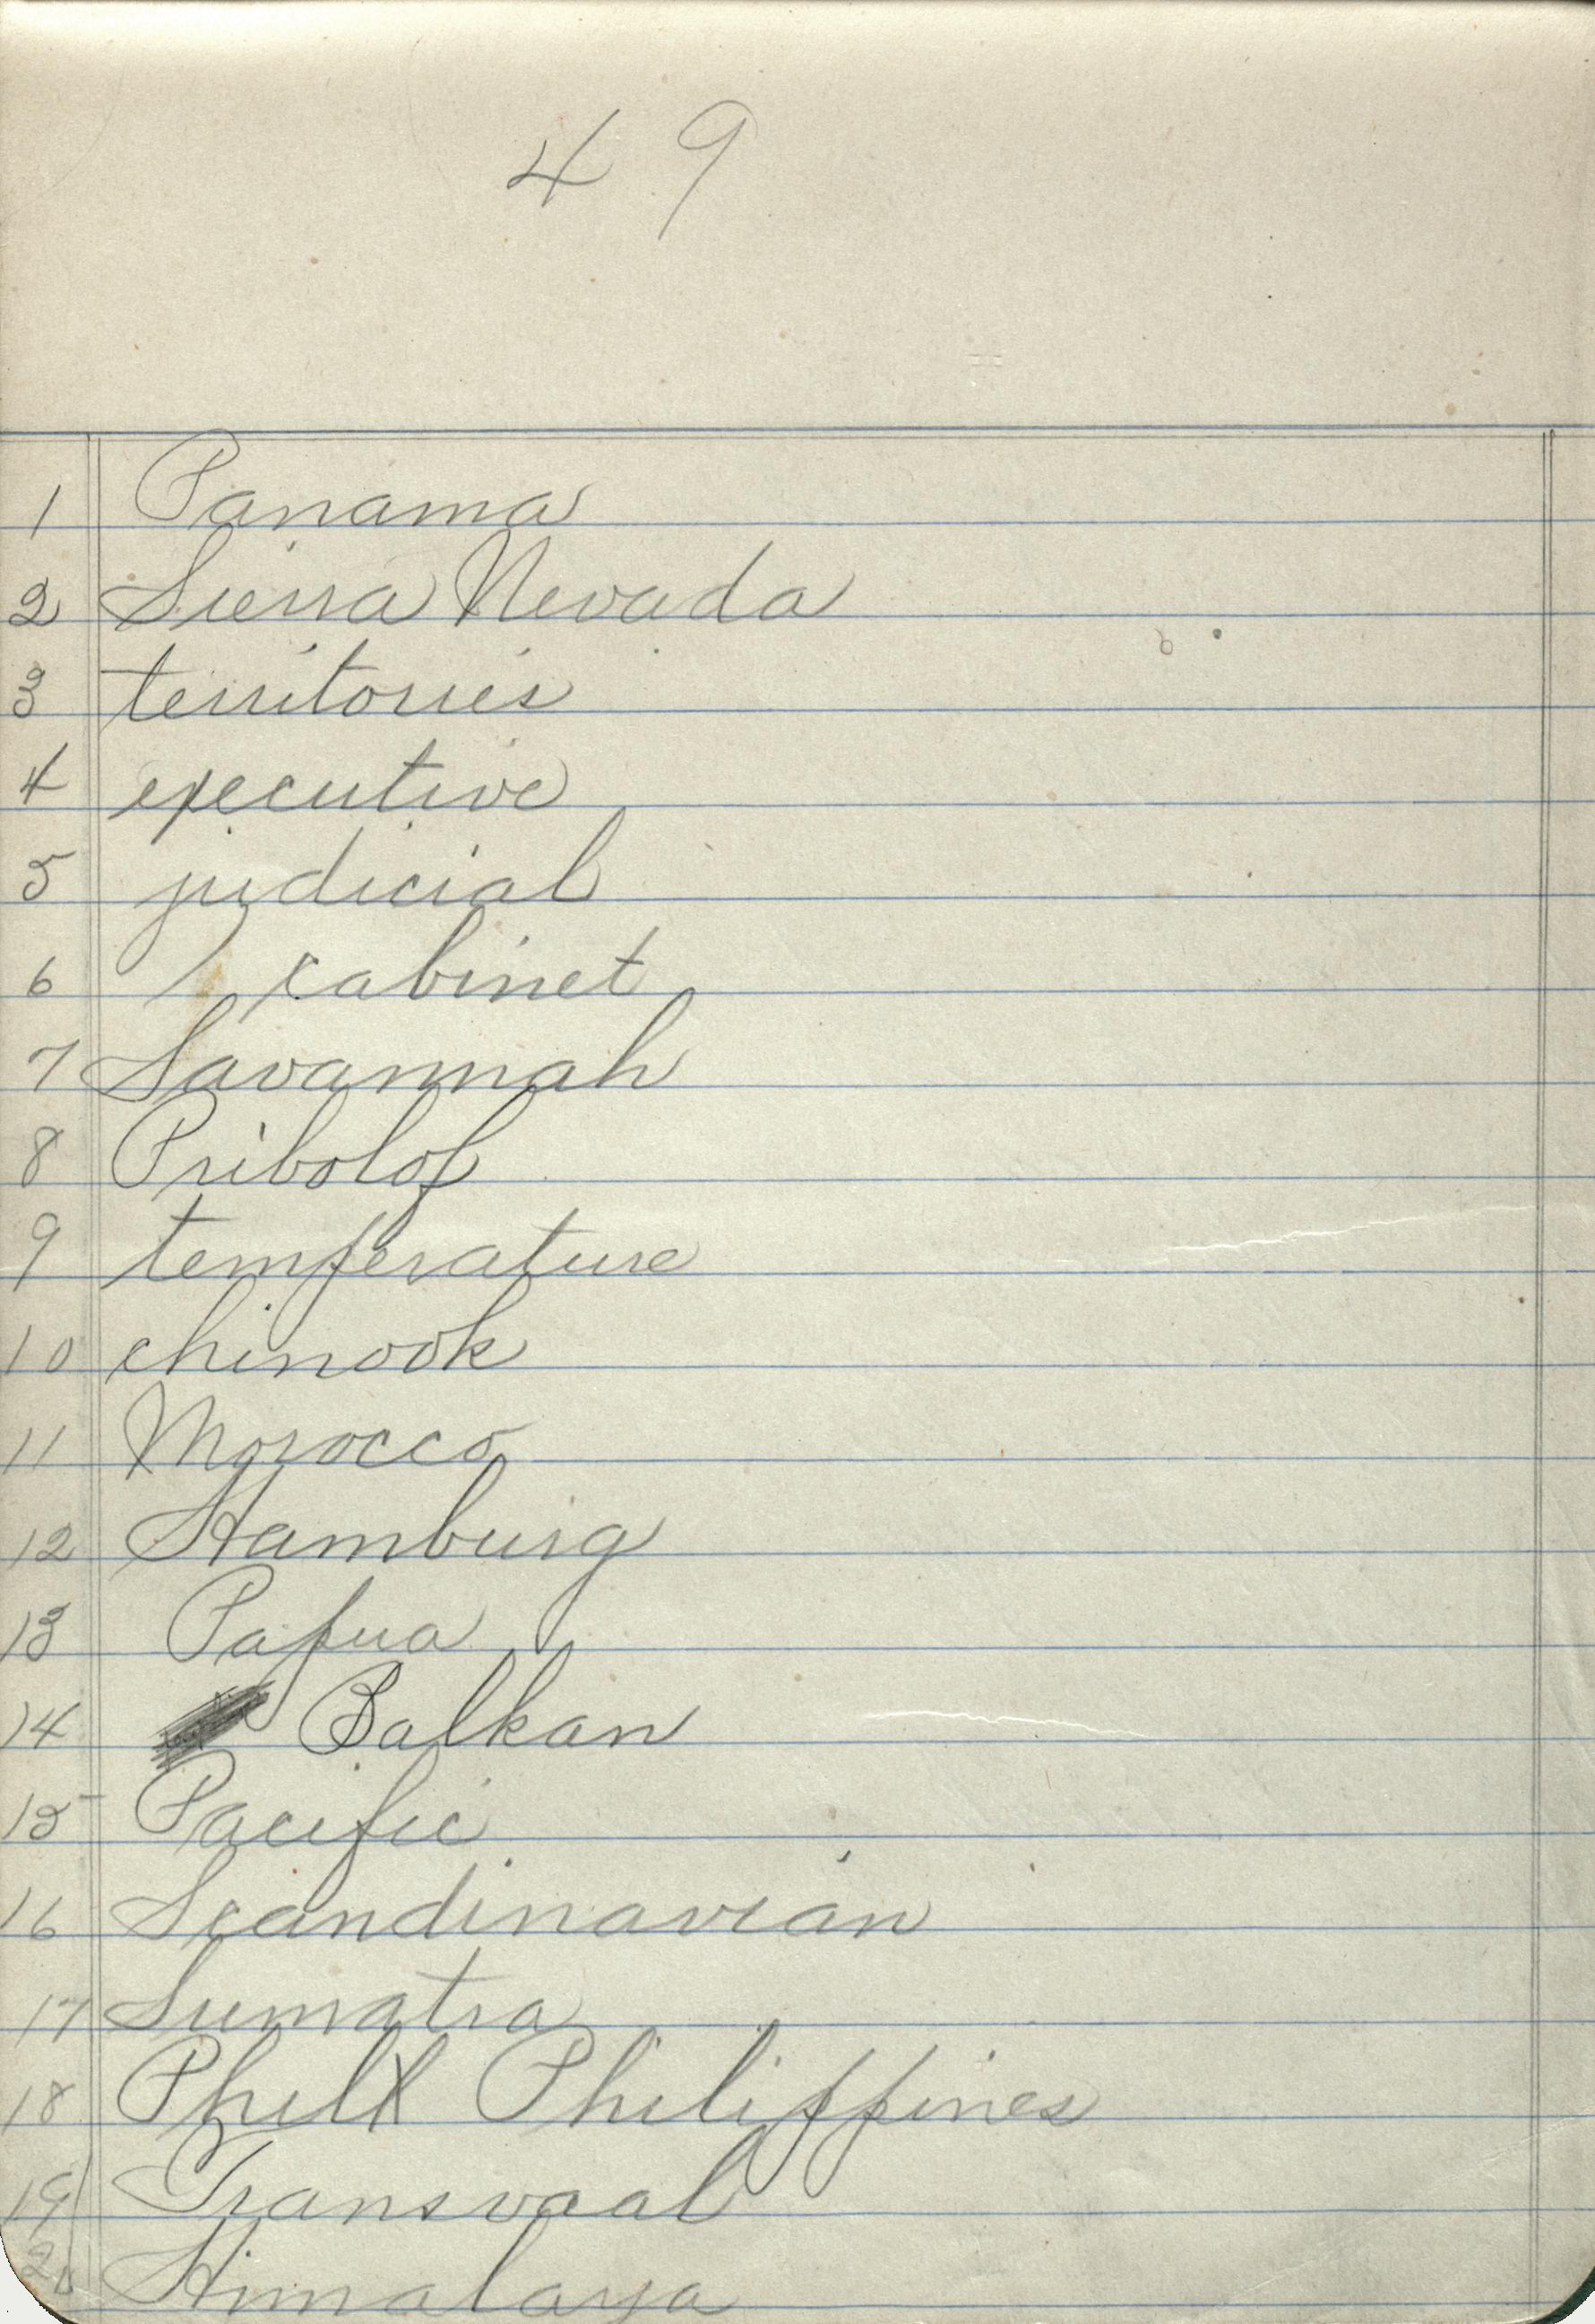 49
1 Panama
2 Sierra Nevada
3 territories
4 executive
5 judicial
6 cabinet
7 Savannah
8 Pribolof
9 temperature
10 chinook
11 Morocco
12 Hamburg
13 Papua
14 Balkan
15 Pacific
16 Scandinavian
17 Sumatra
18 Phill Philippines
19 Transvaal
20 Himalaya